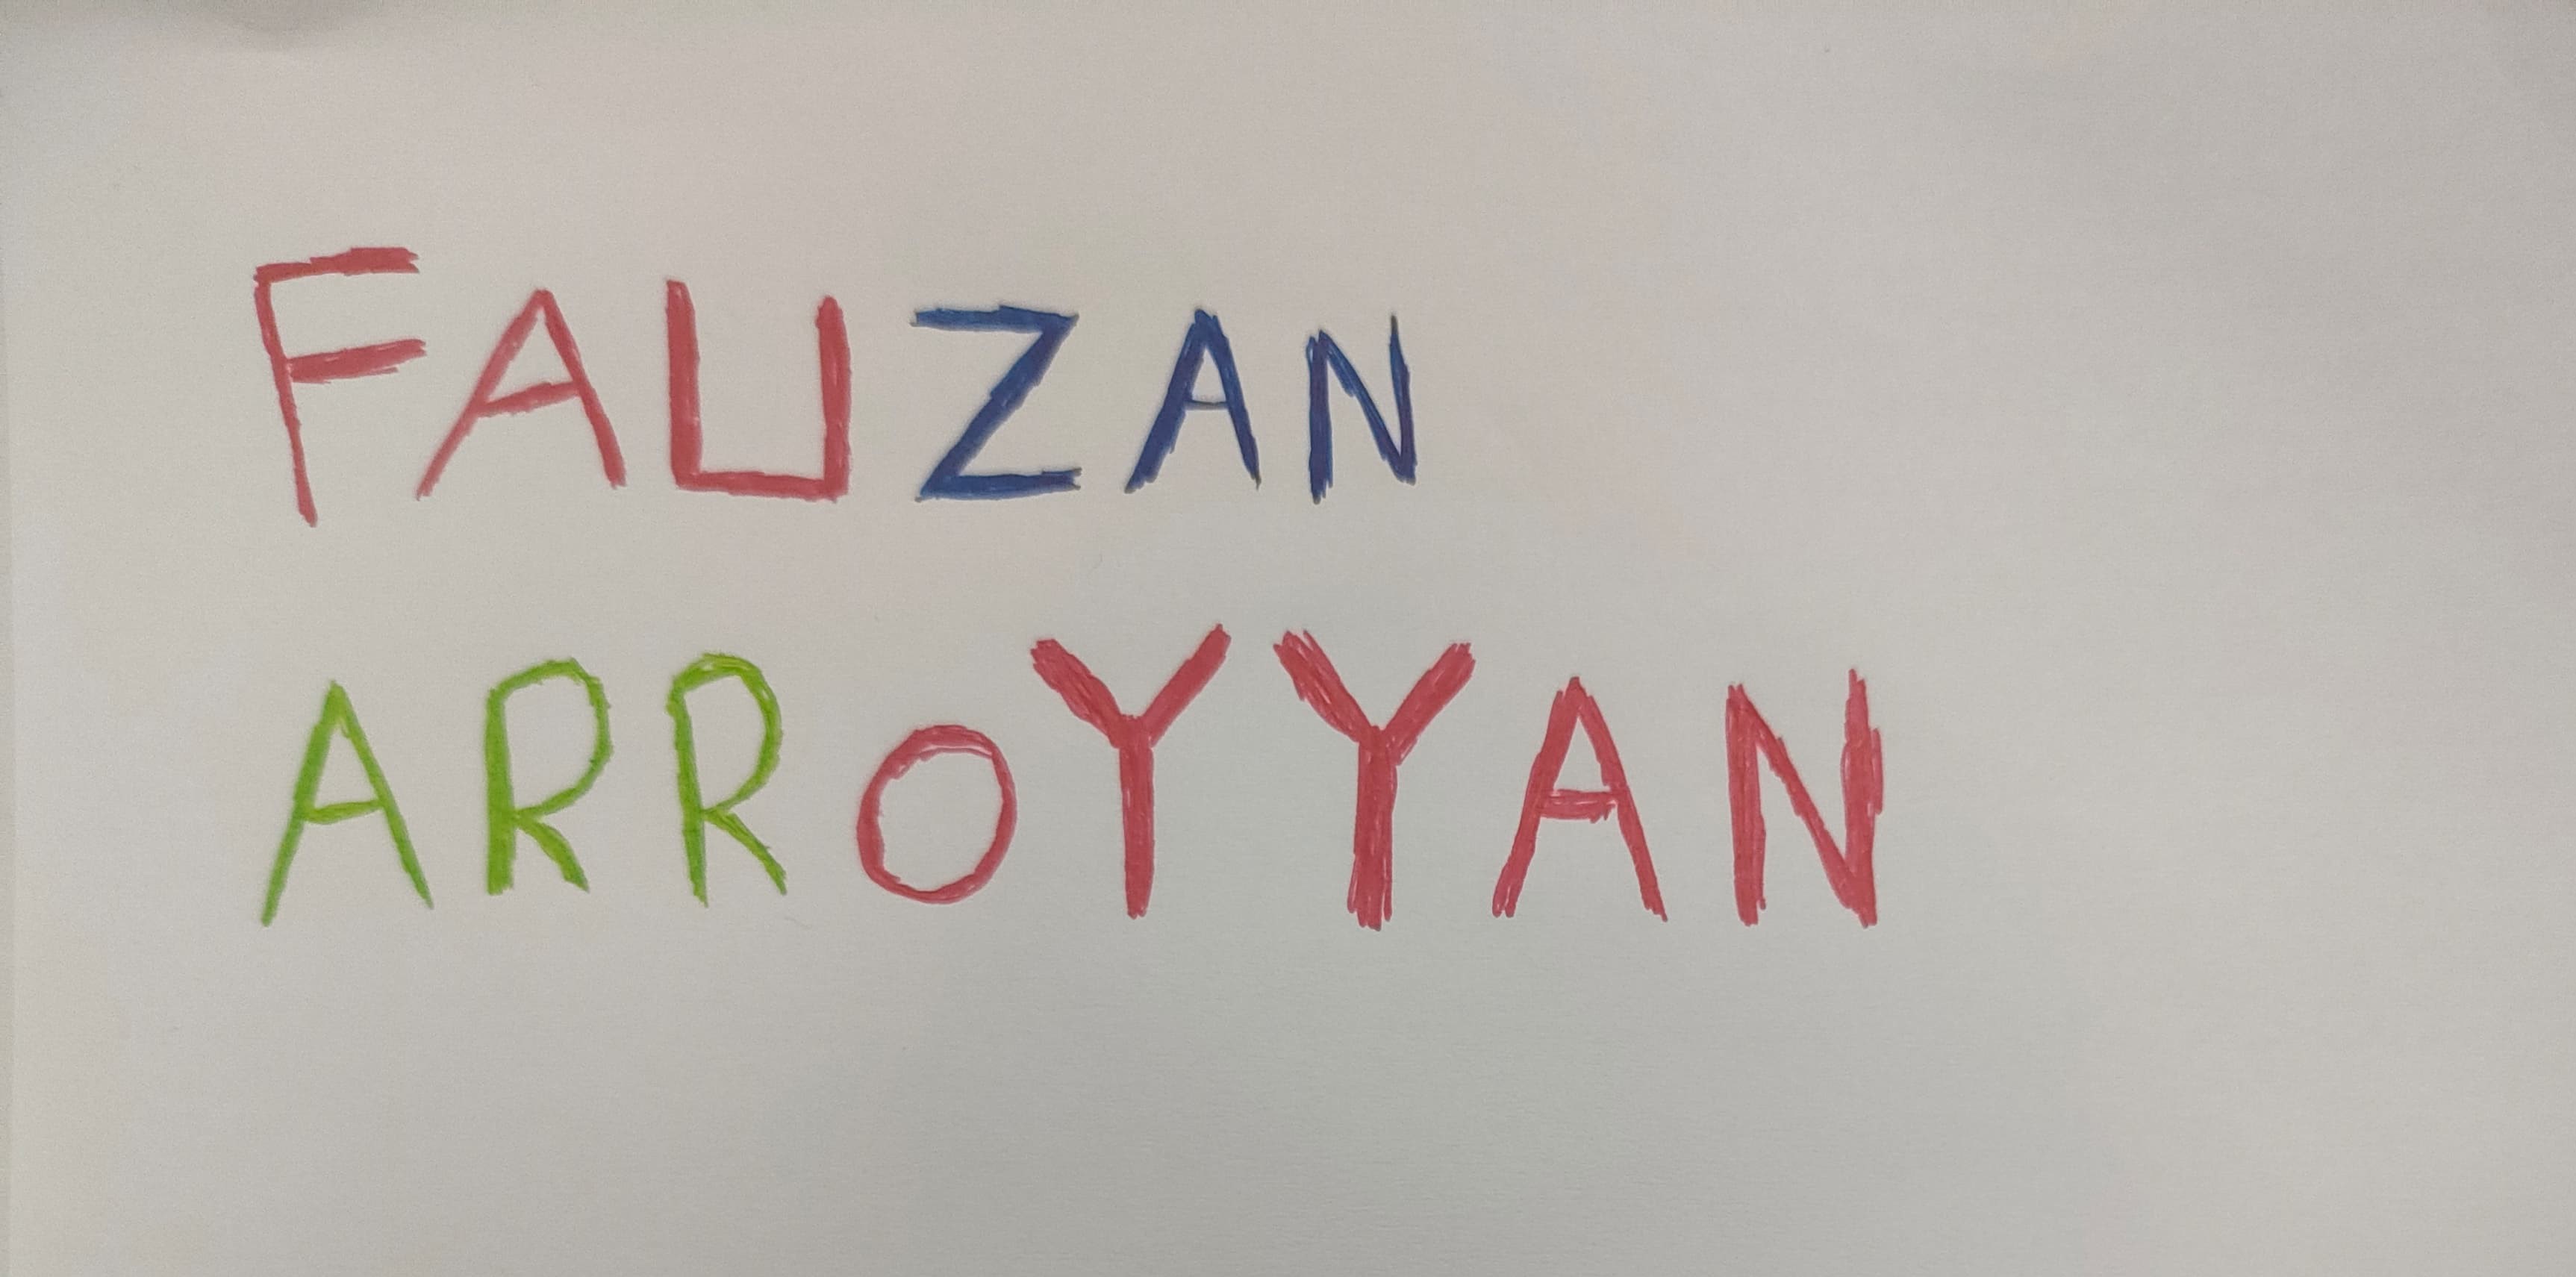 FAUZAN
ARROYYAN